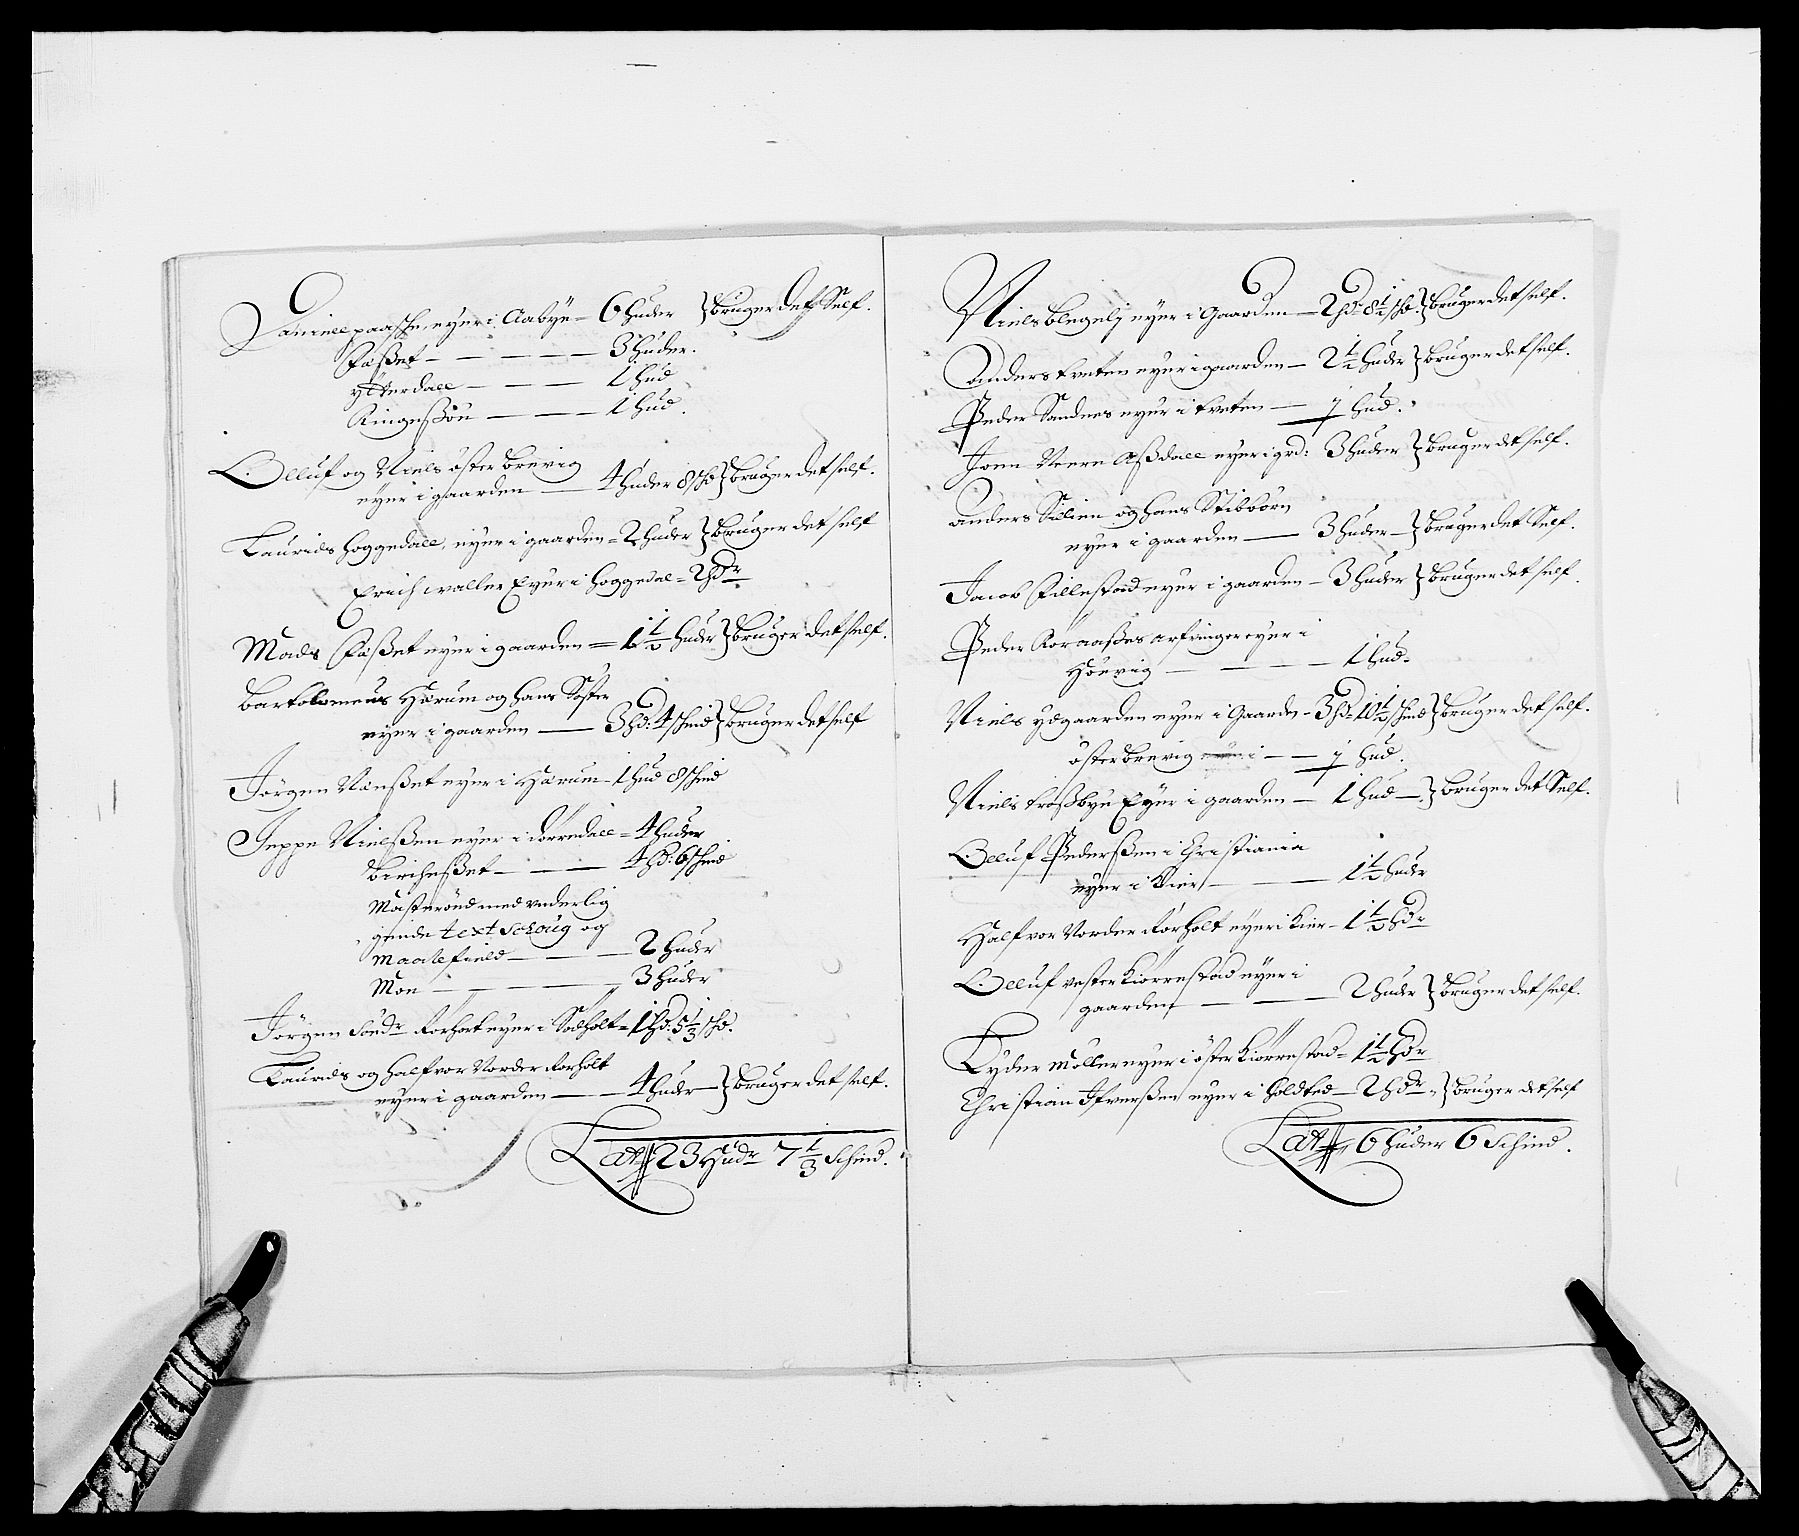 Daniell paasche, eyer i Aabye – 6 huder } bruger det Self.
Faßet – – – – – 3 huder.
ytterdall – – – 1 hud
Ringeßöu – – – 1 hud.
Olluf og Niels öster brevig
eyer i gaarden – 4 huder 8 shd } bruger det self.
Laurids hoggedall, eyer i gaarden = 2 huder } bruger det self
Erich waller Eyer i hoggedal = 2 hdr
Mads Faßet eyer i gaarden = 1 1/2 huder } bruger det self.
Bartolomeus Hærum og hans Söster
eyer i gaarden – 3 hd: 4 schind } bruger det self
Jörgen Næußet eyer i Hærum – 1 hud 8 schind
Jeppe Nielßen eyer i dorredall = 4 huder
Bircheßet – – – 4 hd: 6 schind
Masterönd med underlig
gende text schoug og
Maalefield – – – 2 huder
Moe – – – – 3 huder
Jörgen Söndr Forholt eyer i Solholt = 1 hd: 5 1/3 shd.
Laurids og halfvor Norder Forholt
eyer i gaarden – – 4 huder – } bruger det self.
Lat 23 Hudr 7 1/3 Schind.
Niels blegeli eyer i Gaarden – 2 hd: 8 1/2 shd. } bruger det self.
Anders tveten eyer i gaarden – 2 1/2 huder } bruger det self.
Peder Sandnes eyer i tveten – 1 hud.
Joen Neere Aßdall eyer i grd: 3 huder } bruger det self.
Anders Sillien og hans Stibbörn
eyer i gaarden – 3 huder – } bruger det Self.
Jacob Fillestad eyer i gaarden – 3 huder } bruger det self.
Peder Koraaßes arfvinger eyer i
Höevig – – – – 1 hud.
Niels ydgaarden eyer i Gaarden – 3 hd: 10 1/2 schind } bruger det self.
öster brevig i – – 1 hud.
Niels troßbye Eyer i gaarden – 1 hud – } bruger det Self.
Olluf Pederßen i Christiania
eyer i Kier – – – 1 1/2 huder
Halfvor Norder Forholt eyer i Kier – 1 1/2 hdr
Olluf vester Kiörrestad eyer i
gaarden – – – 2 huder } bruger det self.
Tyder Möller eyer i öster Kiörrestad = 1 1/2 hdr
Christian Ifverßen eyer i holdted – 2 hdr. } bruger det self
Lat 6 huder 6 Schind.